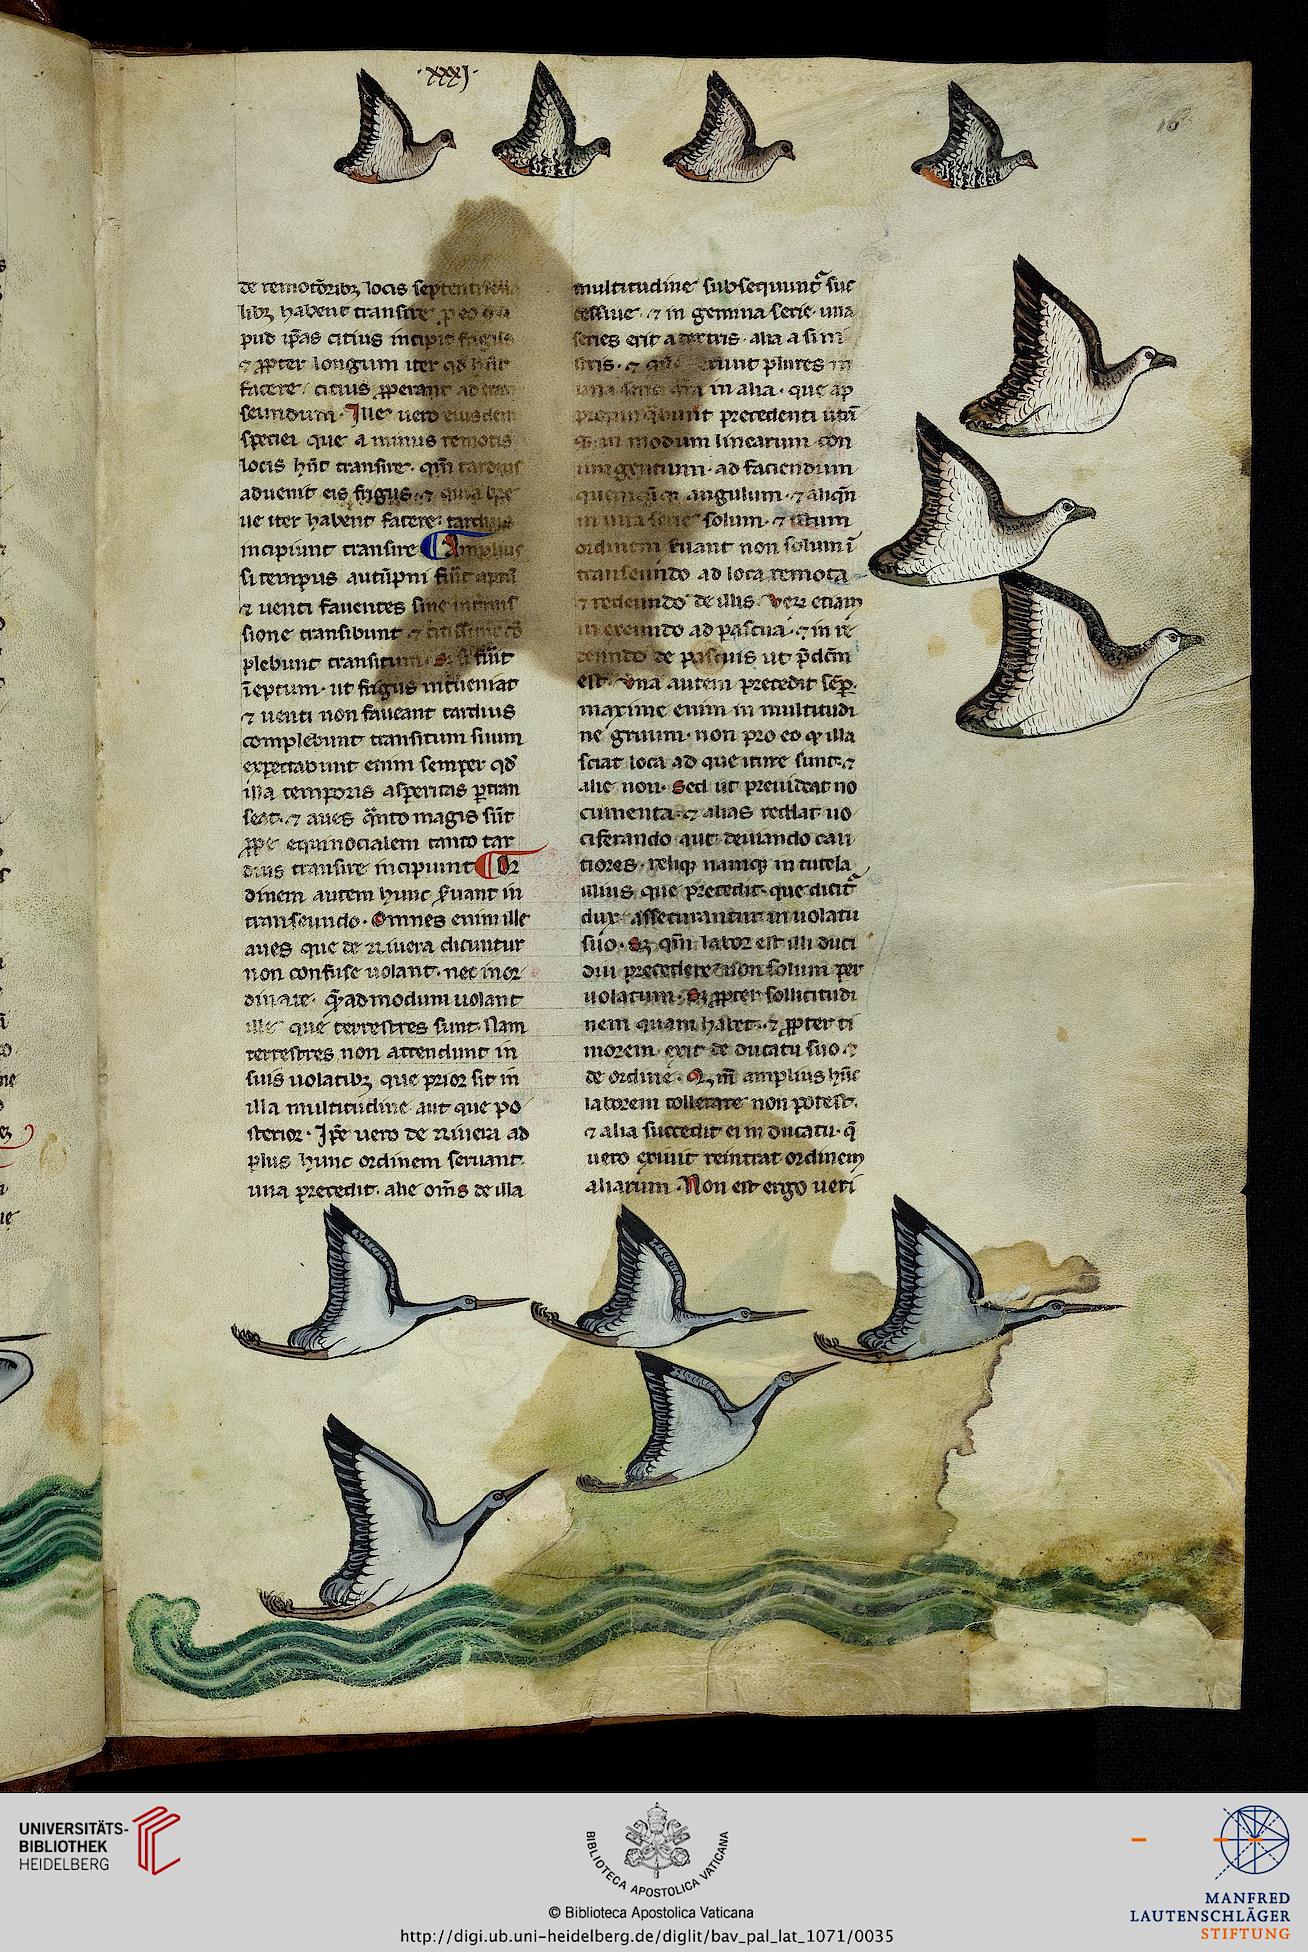 ·xxxj·
16
de remotōribꝫ locis
libꝫ habent transire
pud ip̄as citius incipit frigus
⁊ ꝓpter longum iter qđ hñt
facere citius ꝓperant ad
seundum. Ille uero eiusdem
speciei que a minus remotis
locis hñt transire. qm̄ tardius
aduenit eis frigus. ⁊ quia bre
ue iter habent facere: tardius
incipiunt transire. Amplius
si tempus autūpni fuit aptū
⁊ uenti fauentes sine
sione transibunt ⁊ citissime cō
plebunt transitum. Sꝫ si fuit
īeptum. ut frigus inueniat
⁊ uenti non faueant tardius
complebunt transitum suum
expectabunt enim semper qđ
illa temporis asperitas ꝑtran
seat. ⁊ aues q̄nto magis sūt
ꝓpe equinocialem tanto tar
dius transire incipiunt. Or
dinem autem hunc ẜuant in
transeundo. Omnes enim ille
aues que de riuiera dicuntur
non confuse uolant. nec inor
dinate. q̄madmodum uolant
ille que terrestres sunt. Nam
terrestres non attendunt in
suis uolatibꝫ que prior sit in
illa multitudine aut que po
sterior. Ip̄e uero de riuiera ad
plus hunc ordinem seruant.
una precedit. alie om̄s de illa
multitudine subsequunt᷑ suc
cessiue. ⁊ in gemina serie. una
series erit a dextris. alia a sini
stris. ⁊ erunt plures in
una serie in alia. que ap
propinquabunt precedenti
in modum linearum con
iungentium. ad faciendum
angulum. ⁊ aliqn̄
in una serie solum. ⁊ istum
ordinem ẜuant non solum ī
transeundo ad loca remota
⁊ redeundo de illis. Verꝫ etiam
in exeundo ad pascua. ⁊ in re
deundo de pascuis ut p̄dcm̄
est. Vna autem precedit semꝑ.
maxime enim in multitudi
ne gruum. non pro eo ꝙ illa
sciat loca ad que iture sunt. ⁊
alie non. Sed ut preuideat no
cumenta. ⁊ alias reddat uo
ciferando aut deuiando cau
tiores. relique namqꝫ in tutela
illius que precedit. que dicit᷑
dux assecurantur in uolatu
suo. Sꝫ qm̄ labor est illi duci
diu precedere non solum per
uolatum. Sꝫ ꝓpter sollicitudi
nem quam habet. ⁊ ꝓpter ti
morem exit de ducatu suo ⁊
de ordine. amplius hunc
laborem tollerare non potest.
⁊ alia succedit ei in ducatu. q̄
uero exiuit reintrat ordinem
aliarum. Non est ergo ueri
UNIVERSITÄTS-
BIBLIOTHEK
HEIDELBERG
BIBLIOTECA APOSTOLICA VATICANA
© Biblioteca Apostolica Vaticana
http://digi.ub.uni-heidelberg.de/diglit/bav_pal_lat_1071/0035
MANFRED
LAUTENSCHLÄGER
STIFTUNG